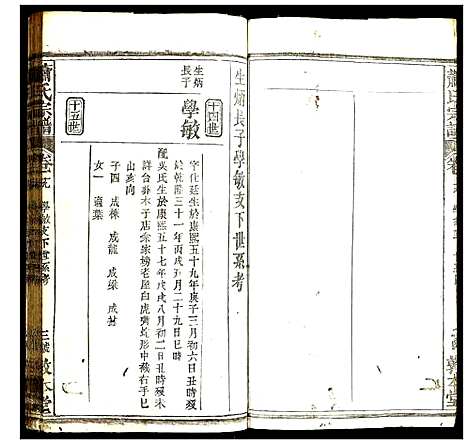 生炳長子學敏支下世系考
十四世
生炳
長子
學敏
字仕廷生於康熙五十九年庚子三月初六日巳時
於乾隆三十一年丙戌五月二十九日巳時
配吳氏生於康熙五十七年戊戌八月初二日丑時歿
詳合葬木子店余家塝老屋白虎嘴形中穴右手巳
山亥向
子四 成棟 成龍 成 成
女一 適葉
十五世
蕭氏宗譜
卷 學敏支下世系考
三 敦本堂
蕭氏宗譜
卷
敦本堂